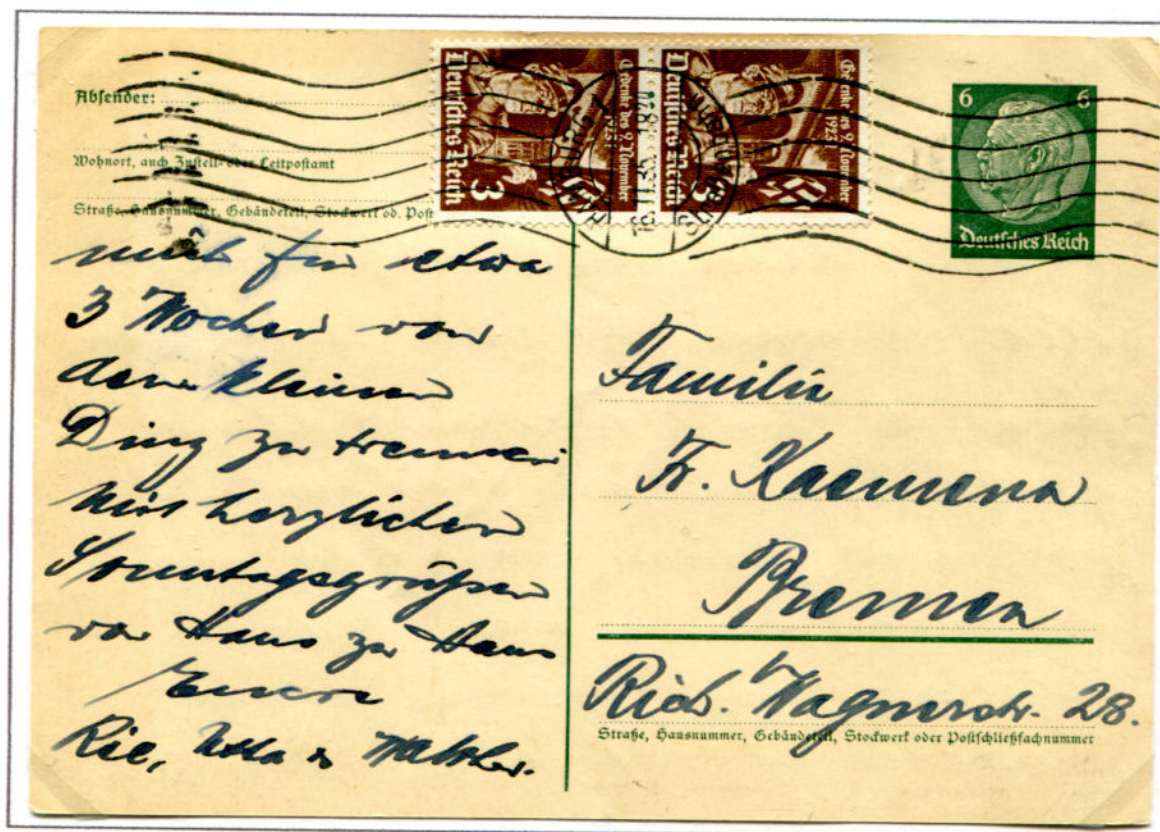 Absender:
Wohnort, auch Zustell- oder Leitpostamt
Straße, Hausnummer, Gebäudeteil, Stockwerk od. Post
Gedenke des 9. November
1923
Deutsches Reich
3
Gedenke des 9. November
1923
Deutsches Reich
3
HAMBURG 1
16.11.35. 18
6 6
Deutsches Reich
mich für etwa
3 Wochen von
dem kleinen
Ding zu trennen.
Mit herzlichen
Sonntagsgrüßen
von Haus zu Haus
Euere
Familie
Fr. Kaemena
Bremen
Rich. Wagnerstr. 28.
Straße, Hausnummer, Gebäudeteil, Stockwerk oder Postschließfachnummer